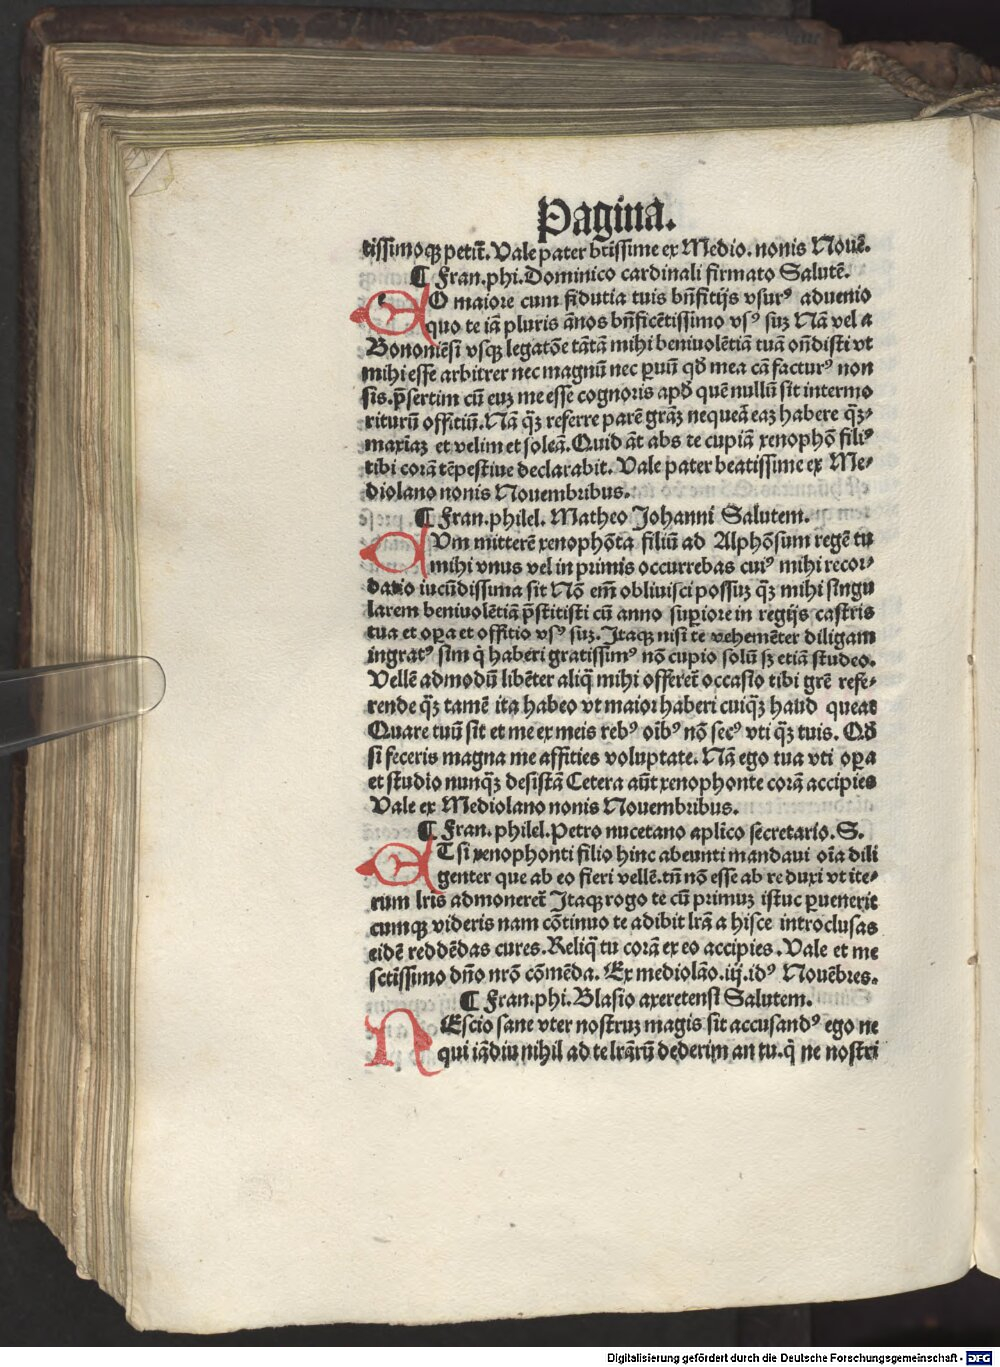 Pagina.
tissimoqꝫ petiit̄. Vale pater btissime ex Medio. nonis Nouē.
¶ Fran. phi. Dominico cardinali firmato Salutē.
EO maiore cum fidutia tuis bn̄fitijs vsurꝰ aduenio
quo te iā pluris ānos bn̄ficētissimo vsꝰ suꝫ Nā vel a
Bononiēsi vsqꝫ legatōe tātā mihi beniuolētiā tuā on̄disti vt
mihi esse arbitrer nec magnū nec ꝑuū qḋ mea cā facturꝰ non
sis. p̄sertim cū euꝫ me esse cognoris apḋ quē nullū sit intermo
riturū offitiū. Nā qꝫ̄ referre parē grāꝫ nequeā eaꝫ habere qꝫ̄-
maxīaꝫ et velim et soleā. Quid āt abs te cupiā xenophō filiꝰ
tibi corā tēpestiue declarabit. Vale pater beatissime ex Me-
diolano nonis Nouembribus.
¶ Fran. philel. Matheo Johanni Salutem.
CVm mitterē xenophōta filiū ad Alphōsum regē tu
mihi vnus vel in primis occurrebas cuiꝰ mihi recor-
datio iucūdissima sit Nō em̄ obliuisci possuꝫ qꝫ̄ mihi singu
larem beniuolētiā p̄stitisti cū anno suꝑiore in regijs castris
tua et oꝑa et offitio vsꝰ suꝫ. Itaqꝫ nisi te vehemēter diligam
ingratꝰ sim q̇ haberi gratissimꝰ nō cupio solū sꝫ etiā studeo.
Vellē admodū libēter aliq̄ mihi offeret̄ occasio tibi grē refe-
rende qꝫ̄ tamē ita habeo vt maior haberi cuiqꝫ̄ haud queat
Quare tuū sit et me ex meis rebꝰ oībꝰ nō secꝰ vti qꝫ̄ tuis. Qḋ
si feceris magna me affities voluptate. Nā ego tua vti oꝑa
et studio nunqꝫ̄ desistā Cetera aūt xenophonte corā accipies
Vale ex Mediolano nonis Nouembribus.
¶ Fran. philel. Petro nucetano aplico secretario. S.
ET si xenophonti filio hinc abeunti mandaui oīa dili
genter que ab eo fieri vellē. tn̄ nō esse ab re duxi vt ite-
rum lris admoneret̄ Itaqꝫ rogo te cū primuꝫ istuc ꝑuenerit
cumqꝫ videris nam cōtinuo te adibit lrā a hisce introclusas
eidē reddēdas cures. Reliq̄ tu corā ex eo accipies. Vale et me
sctissimo dn̄o nrō cōmēda. Ex mediolāo. iij. idꝰ Nouēbres.
¶ Fran. phi. Blasio axeretensi Salutem.
NEscio sane vter nostruꝫ magis sit accusandꝰ ego ne
qui iādiu nihil ad te lrārū dederim an tu. q̇ ne nostri
Digitalisierung gefördert durch die Deutsche Forschungsgemeinschaft - DFG